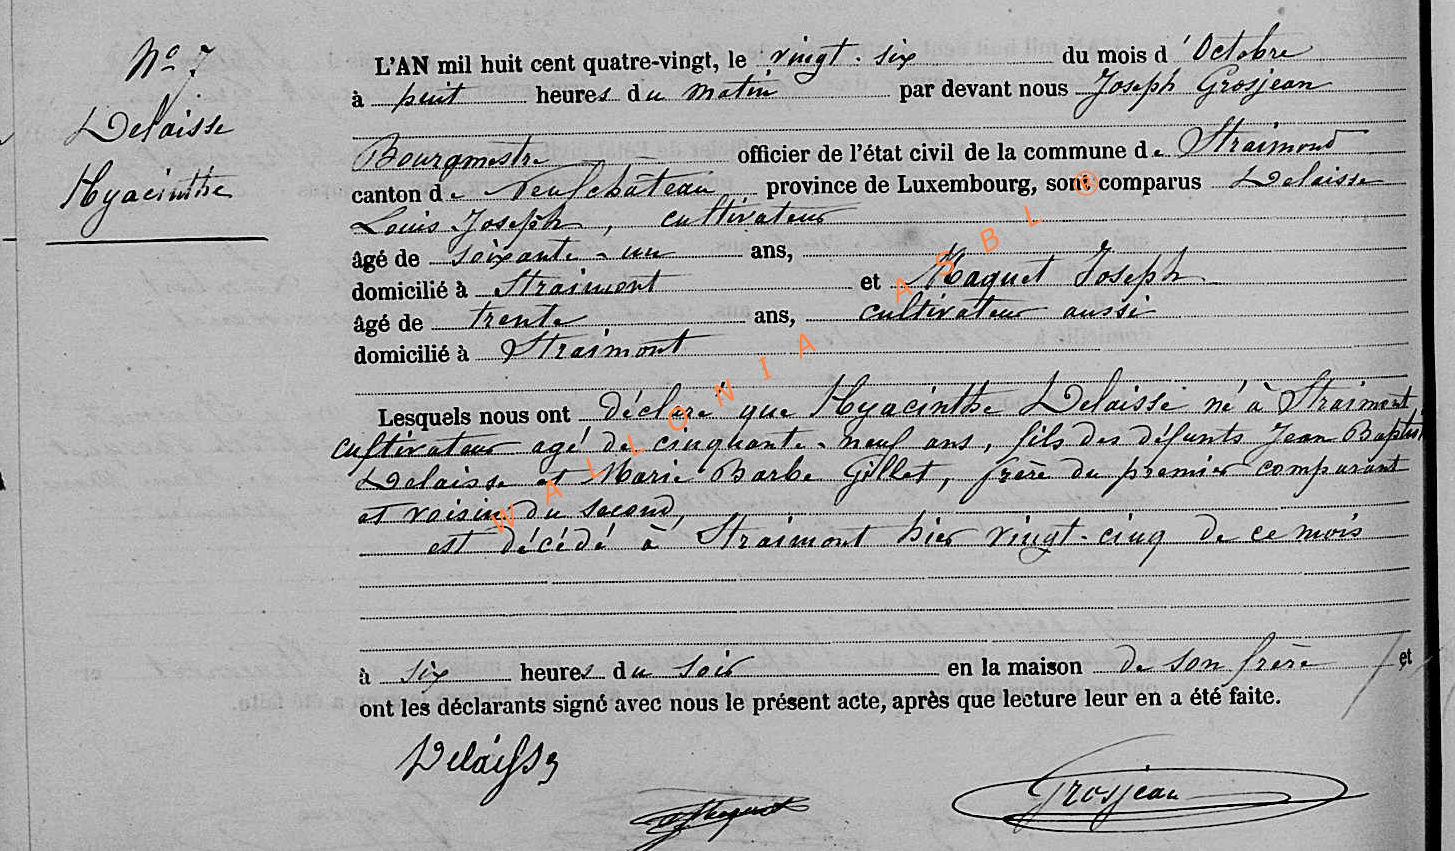 No 7
Delaisse
Hyacinthe
L'AN mil huit cent quatre-vingt, le vingt-six du mois d'Octobre
à huit heures du matin par devant nous Joseph Grosjean
Bourgmestre officier de l'état civil de la commune de Straimont
canton de Neufchâteau province de Luxembourg, sont comparus Delaisse
Louis Joseph, cultivateur
âgé de soixante-un ans,
domicilié à Straimont et Maquet Joseph
âgé de trente ans, cultivateur aussi
domicilié à Straimont
Lesquels nous ont déclaré que Hyacinthe Delaisse né à Straimont
cultivateur agé de cinquante-neuf ans, fils des défunts Jean Baptiste
Delaisse et Marie Barbe Gillet, frère du premier comparant
et voisin du second,
est décédé à Straimont hier vingt-cinq de ce mois
à six heures du soir en la maison de son frère et
ont les déclarants signé avec nous le présent acte, après que lecture leur en a été faite.
Delaisse
JMaquet
Grosjean
WALLONIA ASBL ®